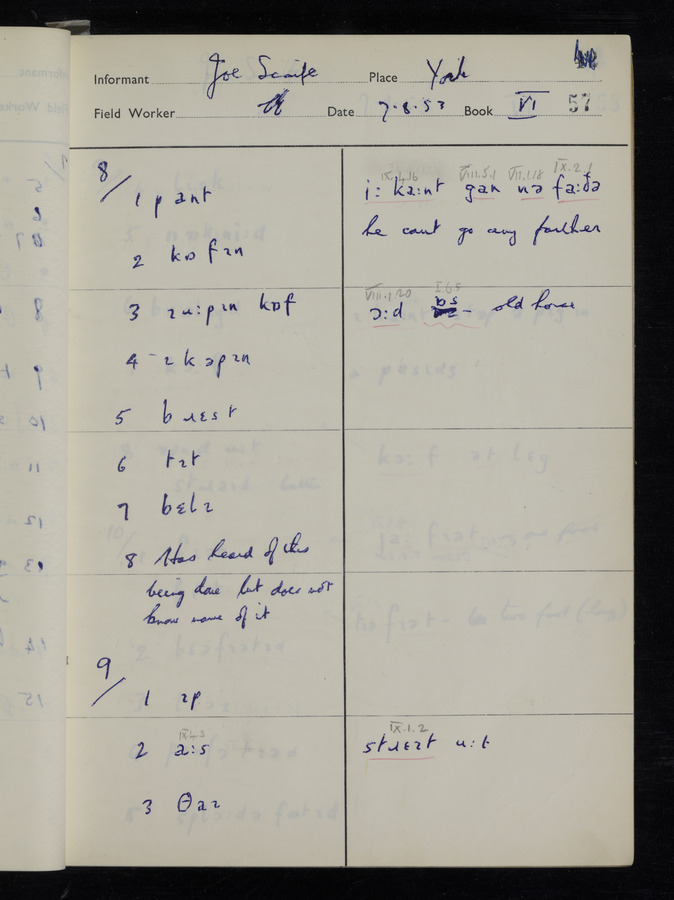 Informant Joe Scaife Place York
Field Worker Date 7.8.53 Book VI 57
8/ 1 pant
IX.4.16 VIII.5.1 VII.1.18 IX.2.1
i: ka:nt gan nə fa:ðə
he cant go any further
2 kɒfɪn
3 ɪu:pɪn kɒf
VIII.1.20 I.6.5
ɔ:d ɒs - old horse
4 ɪkəpɪn
5 bɹɛst
6 tɪt
7 bɛlɪ
8 Has heard of this
being done but does not
know name of it
9/ 1 ɪp
IX.1.2
2 a:s
stɹɛɪt u:t
3 θaɪ